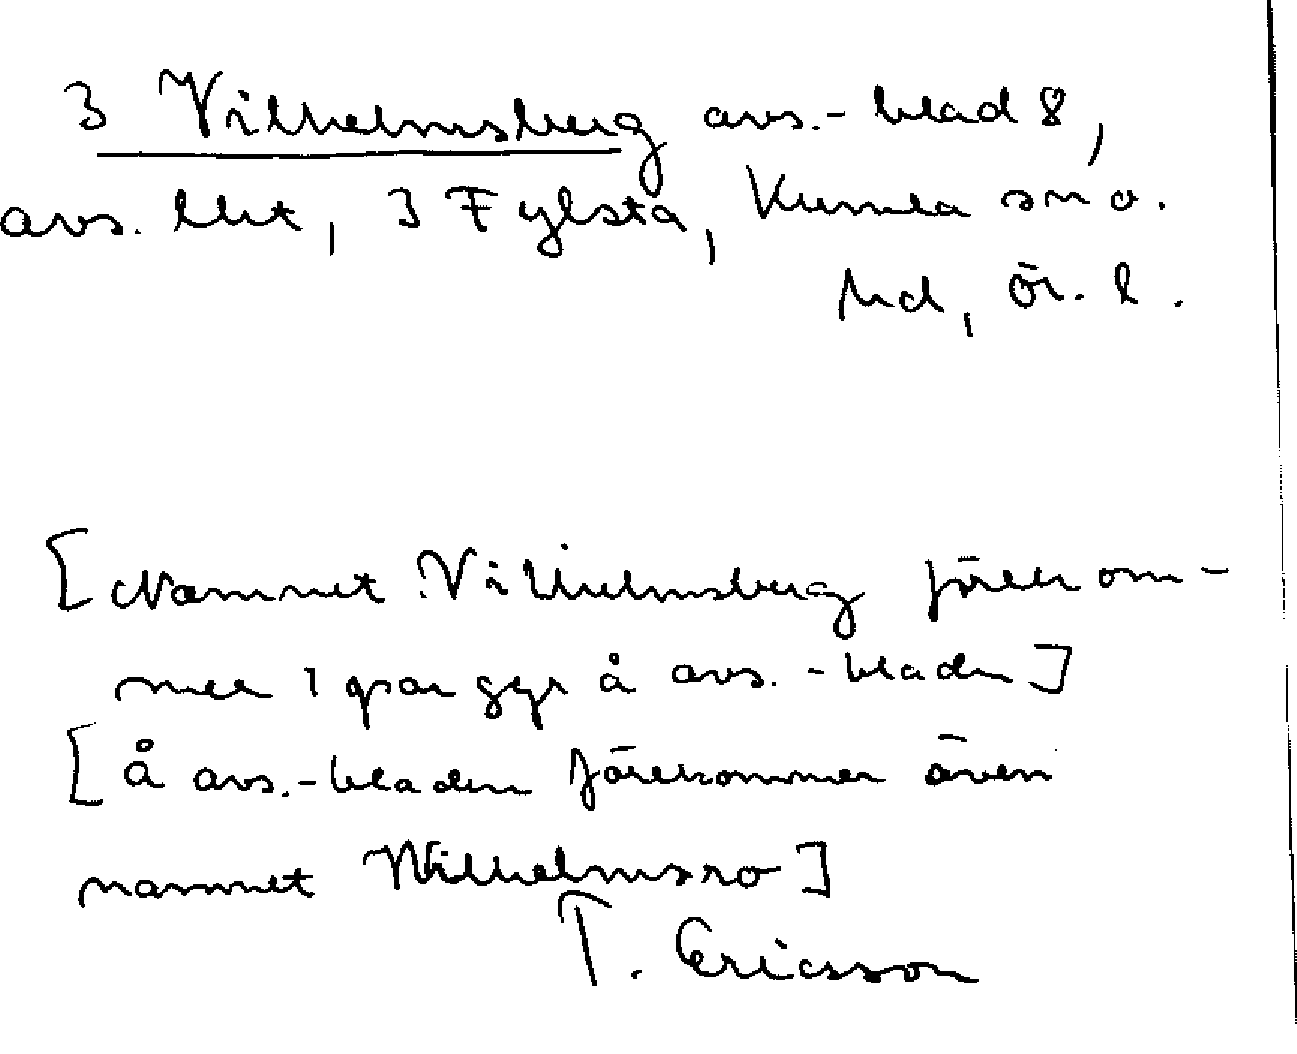 3 Vilhelmsberg avs.-blad 8,
avs. lht, 3 Fylsta, Kumla sn o.
hd, ör. l.
[Namnet Vilhelmsberg förekom-
mer 1 par ggr å avs.-bladen]
[å avs.-bladen förekommer även
namnet Wilhelmsro]
T. Ericsson